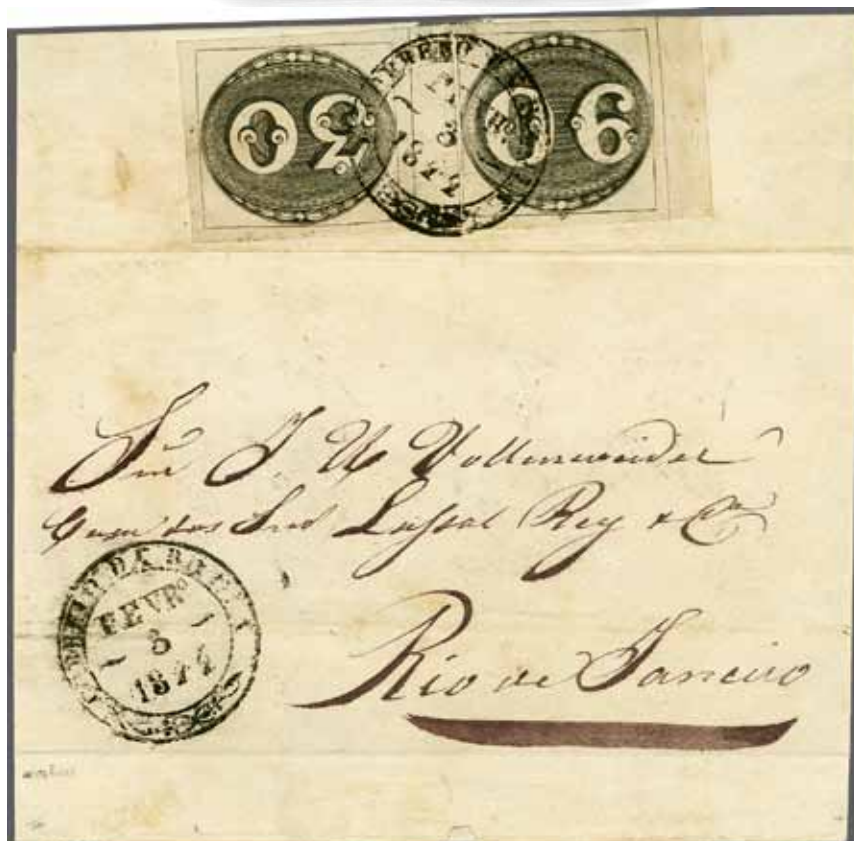 30 60
1844
Snr J. U Vollenweider
Casa dos Snrs Rey & Cia
CORREIO DA BAHIA
FEVRo
3
1844
Rio de Janeiro